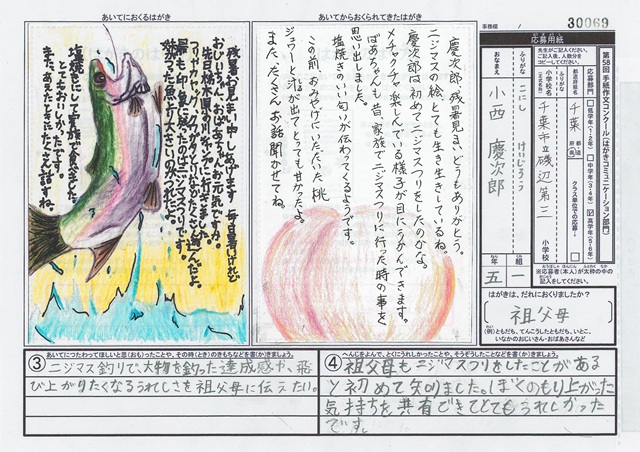 あいてにおくるはがき
残暑お見まい申しあげます 毎日暑いけれど
おじいちゃん、おばあちゃん、お元気ですか。
先日栃木県の川にキャンプに行きました。
最も印象に残ったのはニジマスつりです。
塩焼きにして家族で食べました。
とてもおいしかったです。
また、あえたときにたくさん話すね。
あいてからおくられてきたはがき
慶次郎、残暑見まい、どうもありがとう。
ニジマスの絵、とても生き生きしているね。
慶次郎は初めてニジマスつりをしたのかな。
メチャクチャ楽しんでいる様子が目にうかんできます。
ばあちゃんも、昔、家族でニジマスつりに行った時の事を
思い出しました。
塩焼きのいい匂いが伝わってくるようです。
この前、おみやげにいただいた桃
ジュワーと汁が出てとっても甘かったよ。
また、たくさんお話聞かせてね。
事務欄
30069
応募用紙
第58回 手紙作文コンクール(はがきコミュニケーション部門)
先生がご記入ください。
ご記入後、人数分を
コピーしてください。
応募部門
低学年(1・2年)
中学年(3・4年)
高学年(5・6年)
クラス単位での応募→
都道府県名
千葉 都道府県
ふりがな
小学校名
(正式名称)
千葉市立磯辺第三 小学校
ふりがな
こにし けいじろう
おなまえ
小西 慶次郎
ねん
年 五
くみ
組 一
※応募者(本人)が太枠の中の
記入をしてください。
はがきは、だれにおくりましたか?
( 祖父母 )
(例)ともだち、てんこうしたともだち、いとこ、
いなかのおじいさん・おばあさんなど
③ あいてにつたわってほしいと思(おも)ったことや、その時(とき)のきもちなどを書(か)きましょう。
ニジマス釣りで、大物を釣った達成感や、飛
び上がりたくなるうれしさを祖父母に伝えたい。
④ へんじをよんで、とくにうれしかったことや、そうぞうしたことなどを書(か)きましょう。
祖父母もニジマスつりをしたことがある
と初めて知りました。ぼくのもり上がった
気持ちを共有できてとてもうれしかった
です。